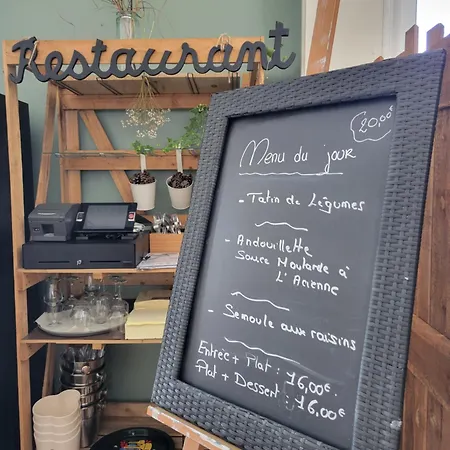 Restaurant
20.00€
Menu du jour
- Tatin de Légumes
- Andouillette
Sauce Moutarde à
L'Ancienne
- Semoule aux raisins
Entrée + Plat : 16,00€.
Plat + Dessert : 16,00€